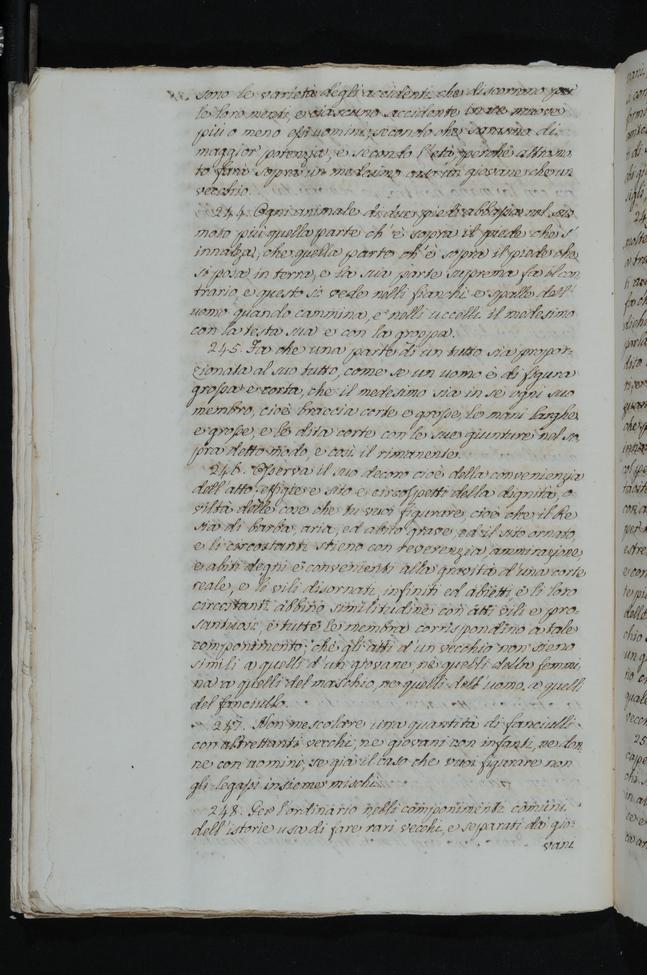 sono le varietà degli accidenti che discorrono per
le loro menti, e ciascuno accidente muove
più o meno essi uomini, secondo che saranno di
maggior potenza, e secondo l'età, perchè altro mo
to farà sopra un medesimo caso un giovane che un
vecchio.
244. Ogni animale di due piedi abbassa nel suo
moto più quella parte ch'è sopra il piede che s'
innalza, che quella parte ch'è sopra il piede che
si posa in terra, e la sua parte suprema fa il con
trario, e questo si vede nelli fianchi e spalle dell'
uomo quando cammina, e nelli uccelli il medesimo
con la testa sua e con la groppa.
245. Fa che una parte di un tutto sia propor-
zionata al suo tutto, come se un uomo è di figura
grossa e corta, che il medesimo sia in se ogni suo
membro, cioè braccia corte e grosse, le mani larghe
e grosse, e le dita corte con le sue giunture nel so
pra detto modo, e così il rimanente.
246. Osserva il suo decoro cioè della convenienzia
dell'atto, effigie e sito e circospetti della dignità, o
viltà delle cose che tu vuoi figurare, cioè che il Re
sia di barba, aria, ed abito grave, ed il sito ornato,
e li circostanti stieno con reverenzia, ammirazione,
e abiti degni e convenienti alla gravità d'una corte
reale, e li vili disornati, infiniti ed abietti e li loro
circostanti abbino similitudine con atti vili e pro-
santuosi, e tutte le membra corrispondino a tale
componimento; che gli atti d'un vecchio non sieno
simili a quelli d'un giovane, nè quelli della femmi
na a quelli del maschio, ne quelli dell'uomo, a quelli
del fanciullo.
247. Non mescolare una quantità di fanciulli
con altrettanti vecchi, nè giovani con infanti, ne don
ne con uomini, se già il caso che vuoi figurare non
gli legassi insieme mischi.
248. Per l'ordinario nelli componimenti comuni
dell'istorie usa di fare rari vecchi, e separati da gio-
vani